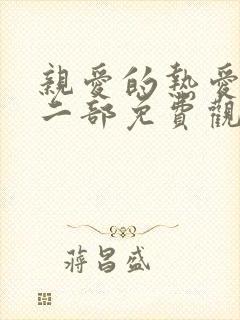 親愛的熱愛
二部免費觀
蔣昌盛